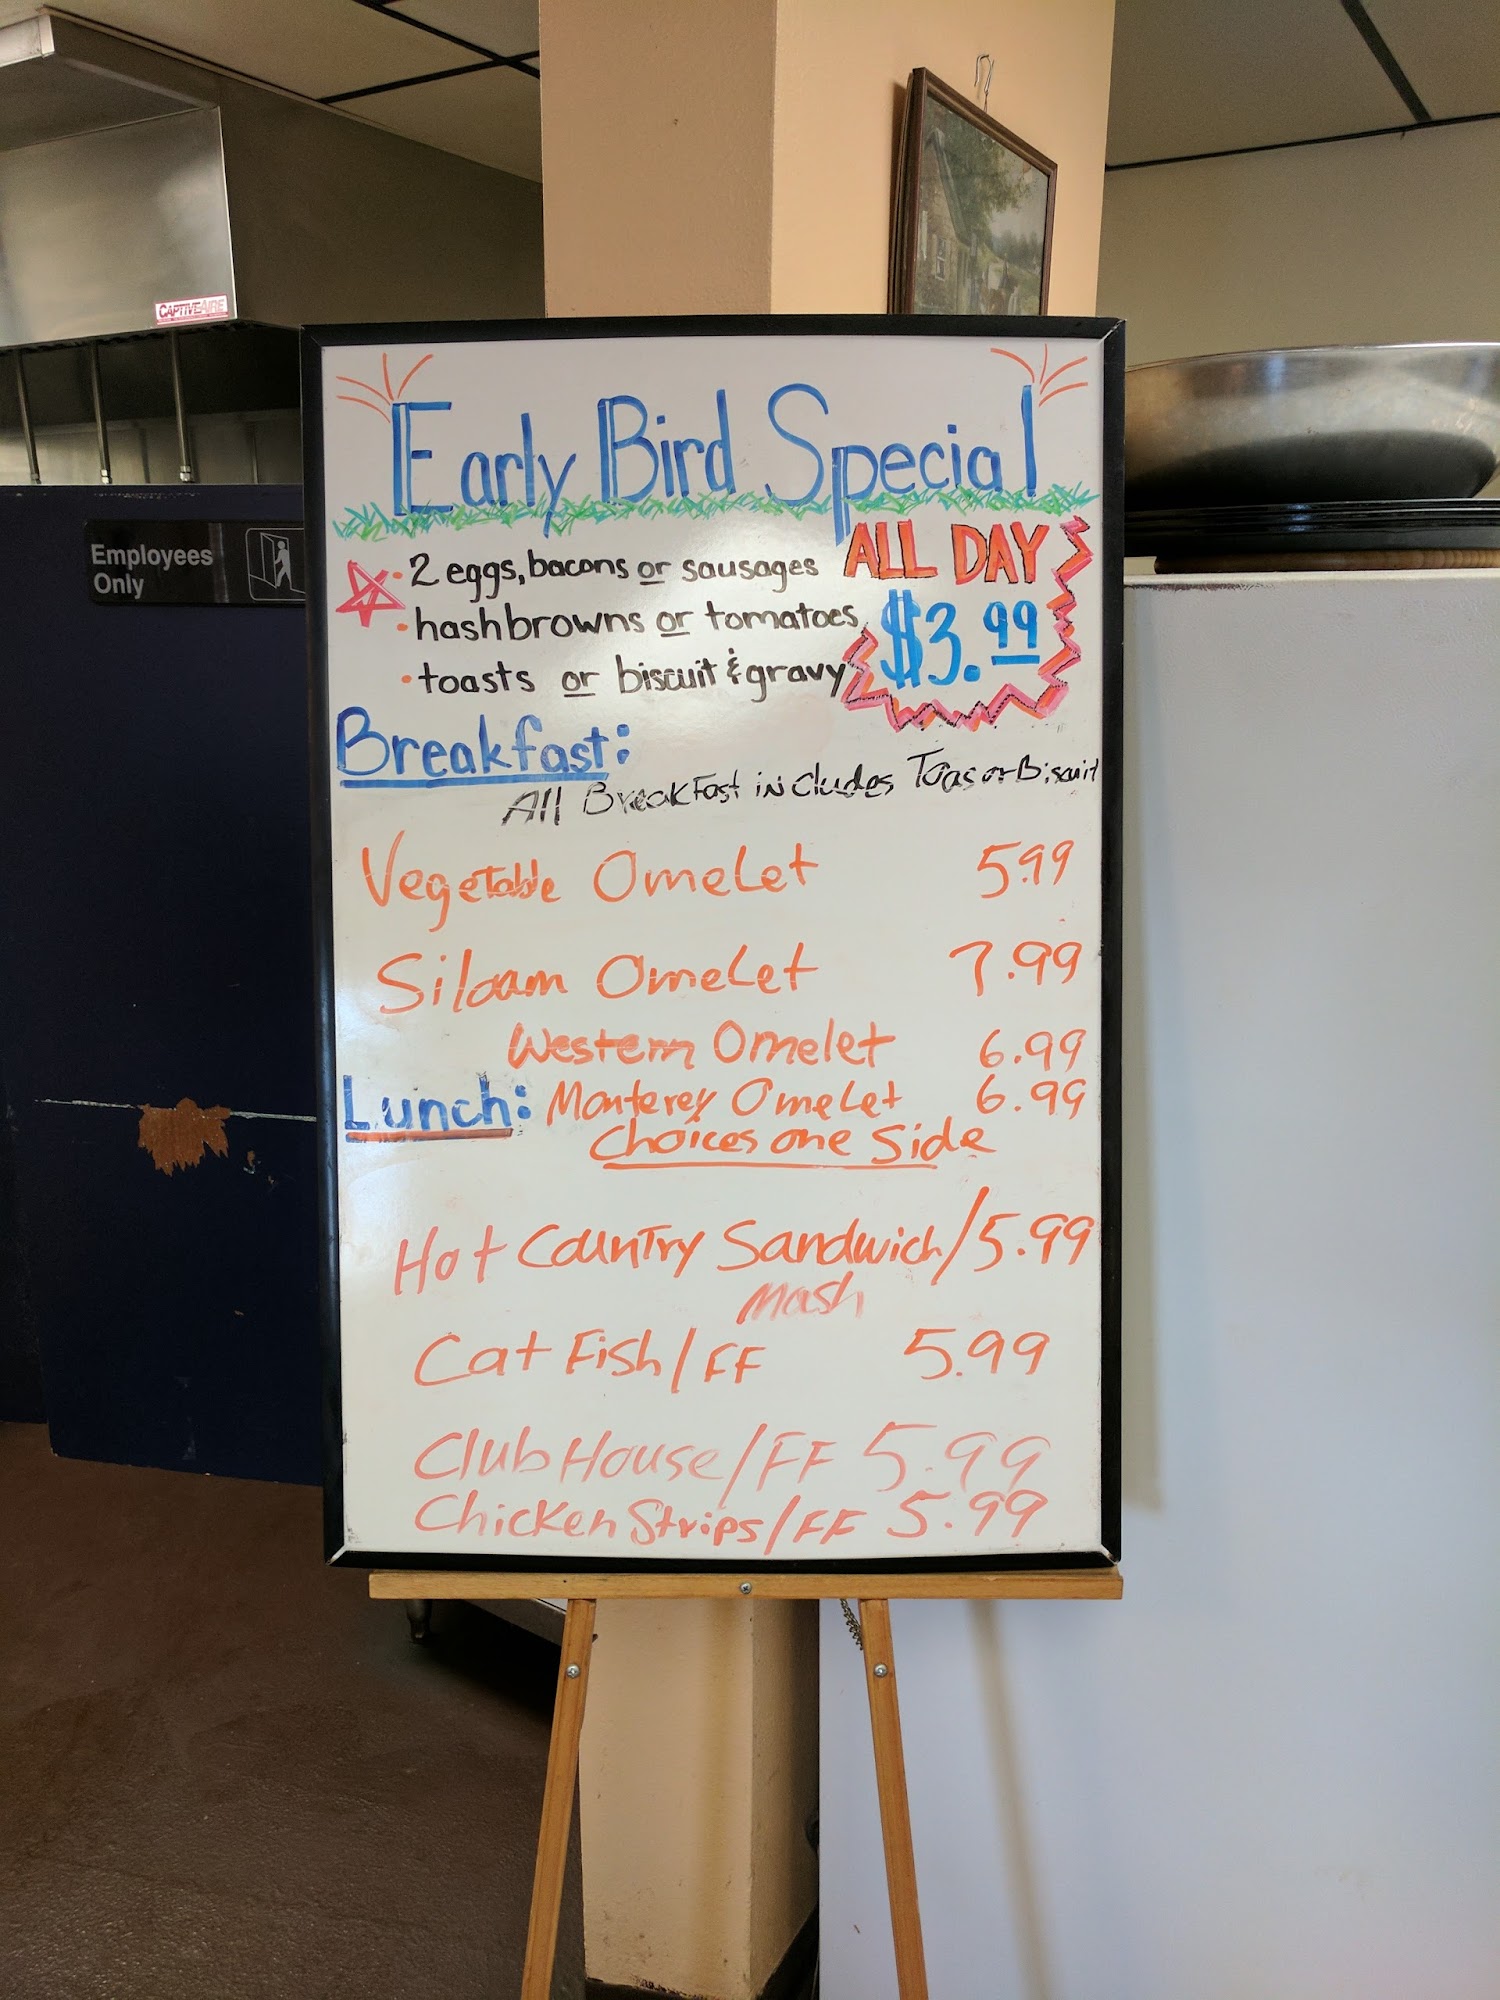 CAPTIVEAIRE
Employees
Only
Early Bird Special
• 2 eggs, bacons or sausages
ALL DAY
• hashbrowns or tomatoes
$3.99
• toasts or biscuit & gravy
Breakfast:
All BreakFast includes Toas or Biscuit
Vegetable Omelet 5.99
Siloam Omelet 7.99
Western Omelet 6.99
Lunch: Monterey Omelet 6.99
Choices one Side
Hot Country Sandwich/5.99
Mash
Cat Fish/FF 5.99
Club House/FF 5.99
Chicken Strips/FF 5.99